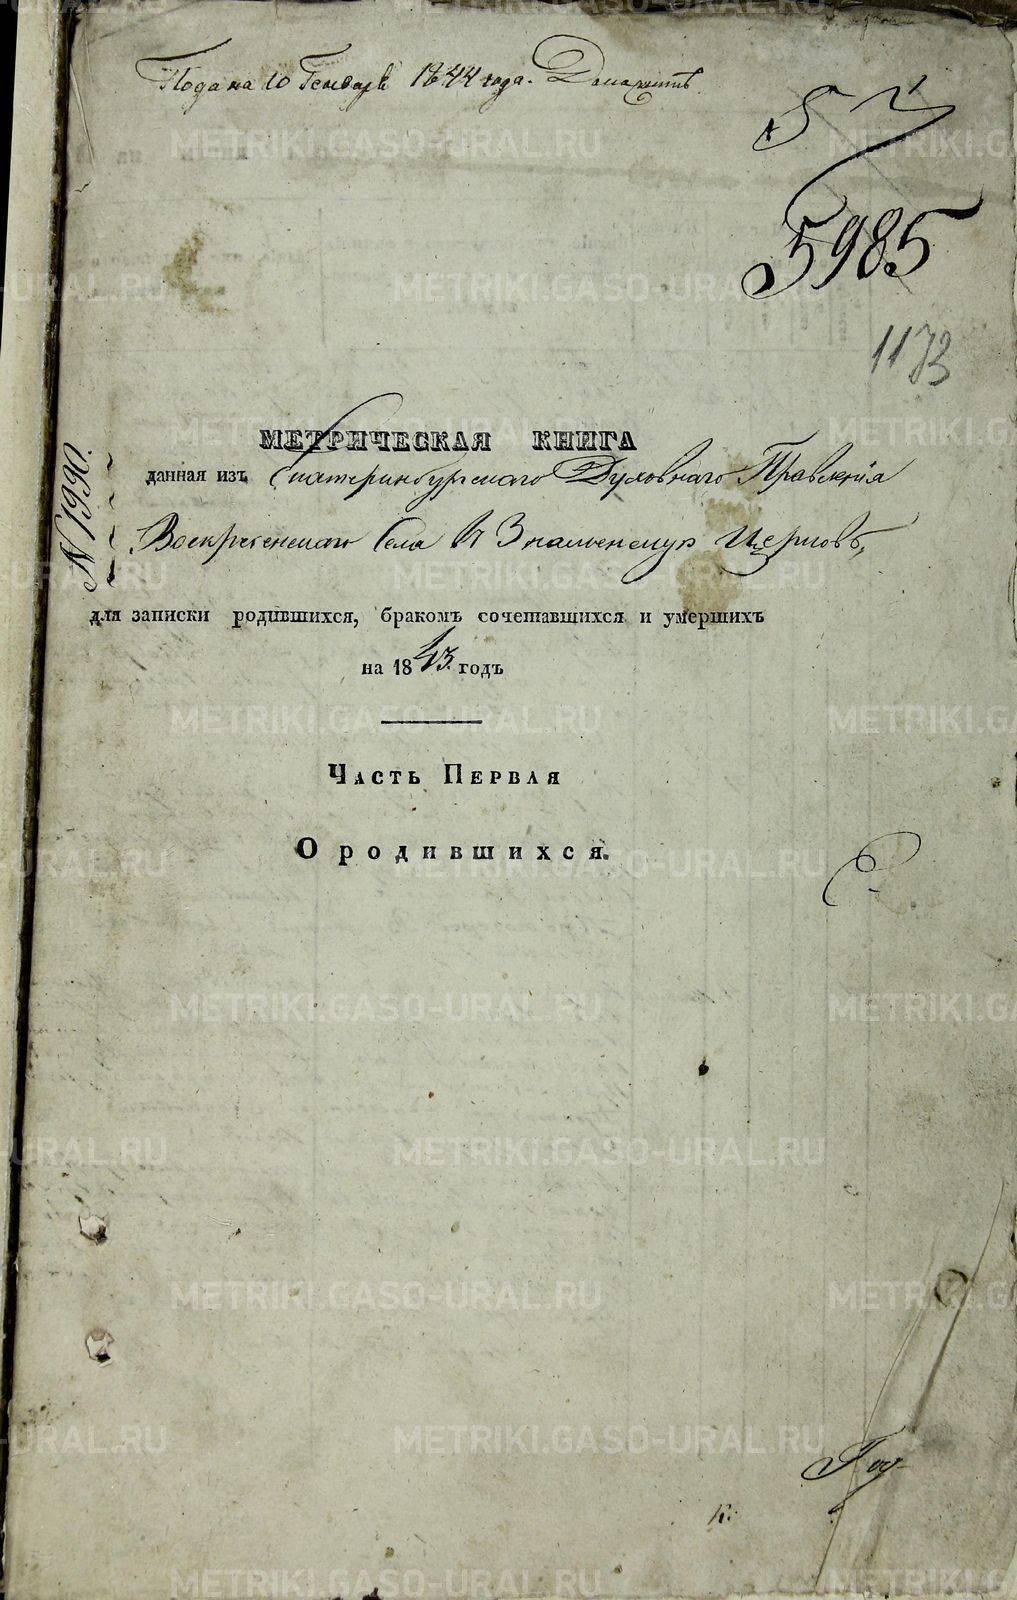 Подана 10 Генваря 1844 года.
5985
1173
МЕТРИЧЕСКАЯ КНИГА
данная изъ Екатеринбургскаго Духовнаго Правленія
N 1990.
Воскресенскаго Села къ Знаменскую Церковь,
для записки родившихся, бракомъ сочетавшихся и умершихъ
на 1843. годъ
Часть Первая
О родившихся.
METRIKI.GASO-URAL.RU